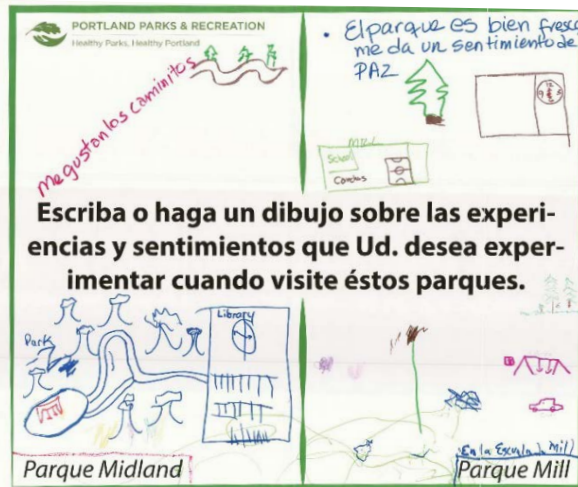 PORTLAND PARKS & RECREATION
Healthy Parks, Healthy Portland
Me gustan los caminitos
• El parque es bien fresco
me da un sentimiento de
PAZ
Mill
School
Canchas
Escriba o haga un dibujo sobre las experi-
encias y sentimientos que Ud. desea exper-
imentar cuando visite éstos parques.
Park
Library
Parque Midland
En la Escuela Mill
Parque Mill